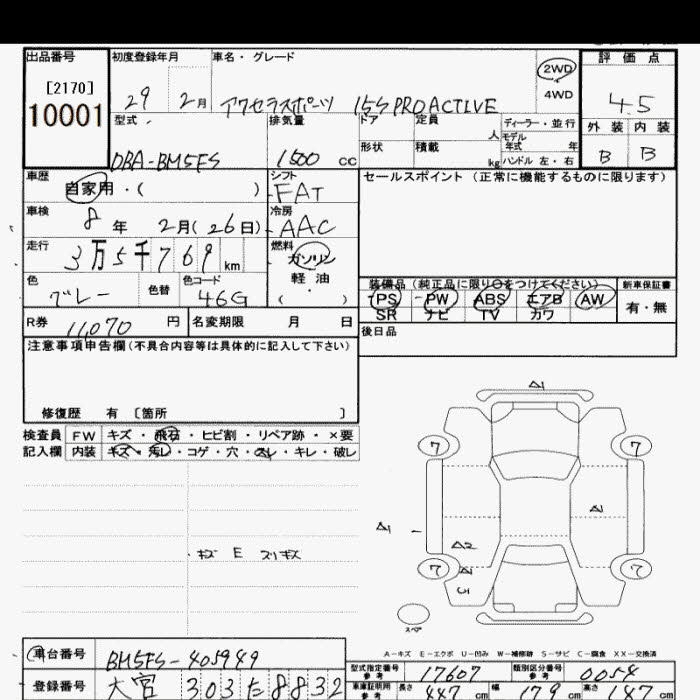 出品番号 初度登録年月 車名・グレード 2WD 評価点
[2170] 29 2月 アクセラスポーツ 15S PROACTIVE 4WD 4.5
10001 型式 排気量 ドア 定員 人 ディーラー・並行 外装 内装
DBA-BM5FS 1500 cc 形状 積載 kg モデル年式 年 ハンドル 左・右 B B
車歴 自家用・( ) シフト FAT セールスポイント (正常に機能するものに限ります)
車検 8年 2月(26日) 冷房 AAC
走行 3万5千769km 燃料 ガソリン 軽油 ( )
色 グレー 色替 色コード 46G 装備品(純正品に限り○をつけてください) 新車保証書
PS PW ABS エアB AW 有・無
SR ナビ TV カワ
R券 11,070円 名変期限 月 日 後日品
注意事項申告欄(不具合内容等は具体的に記入して下さい)
修復歴 有 〔箇所 〕
検査員 FW キズ・飛石・ヒビ割・リペア跡・×要
記入欄 内装 キズ・汚レ・コゲ・穴・スレ・キレ・破レ
A1
7 7
A1 A2 A1
・キズ E スリキズ
7 7
スペア
A-キズ E-エクボ U-凹み W-補修跡 S-サビ C-腐食 XX-交換済
車台番号 BM5FS-405949 型式指定番号 参考 17607 類別区分番号 参考 0054
登録番号 大宮 303 た 8832 車庫証明用 参考 長さ 447cm 幅 179cm 高さ 147cm